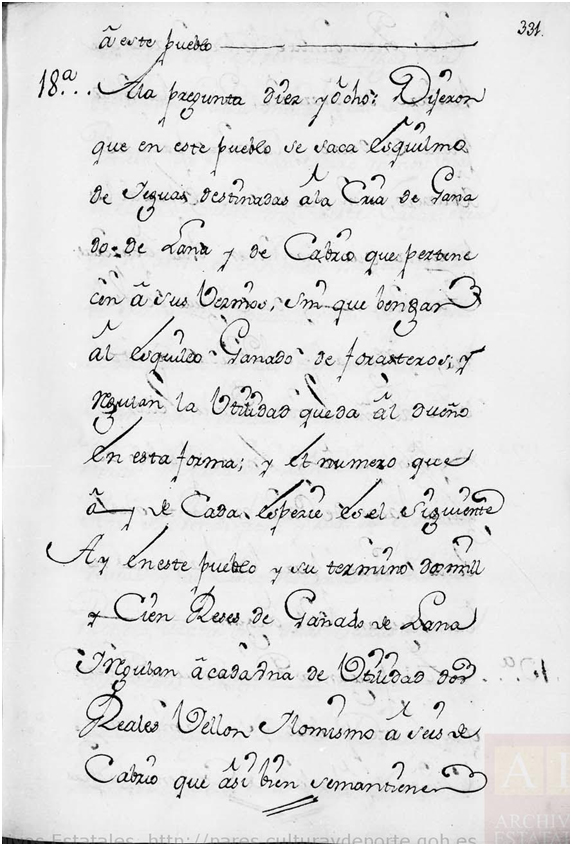 331.
â este pueblo
18ª.. Ala pregunta diez y ocho: Dijeron
que en este pueblo se saca esquilmo
de Yeguas destinadas â la Cria de Gana
do: de Lana y de Cabrio que pertene
cen â sus Vezinos, sin que bengan
âl esquileo Ganado de forasteros; y
regulan la Utilidad queda âl dueño
en esta forma; y el numero que
â y de Cada especie es el siguiente
Ay en este pueblo y su termino dos mill
y Cien Reses de Ganado de Lana
Y regulan â cada una de Utilidad dos
Reales Vellon Ylomismo â seis de
Cabrio que âsi bien semantienen
Estatales http://pares.culturaydeporte.gob.es
ARCHIV
ESTATAL